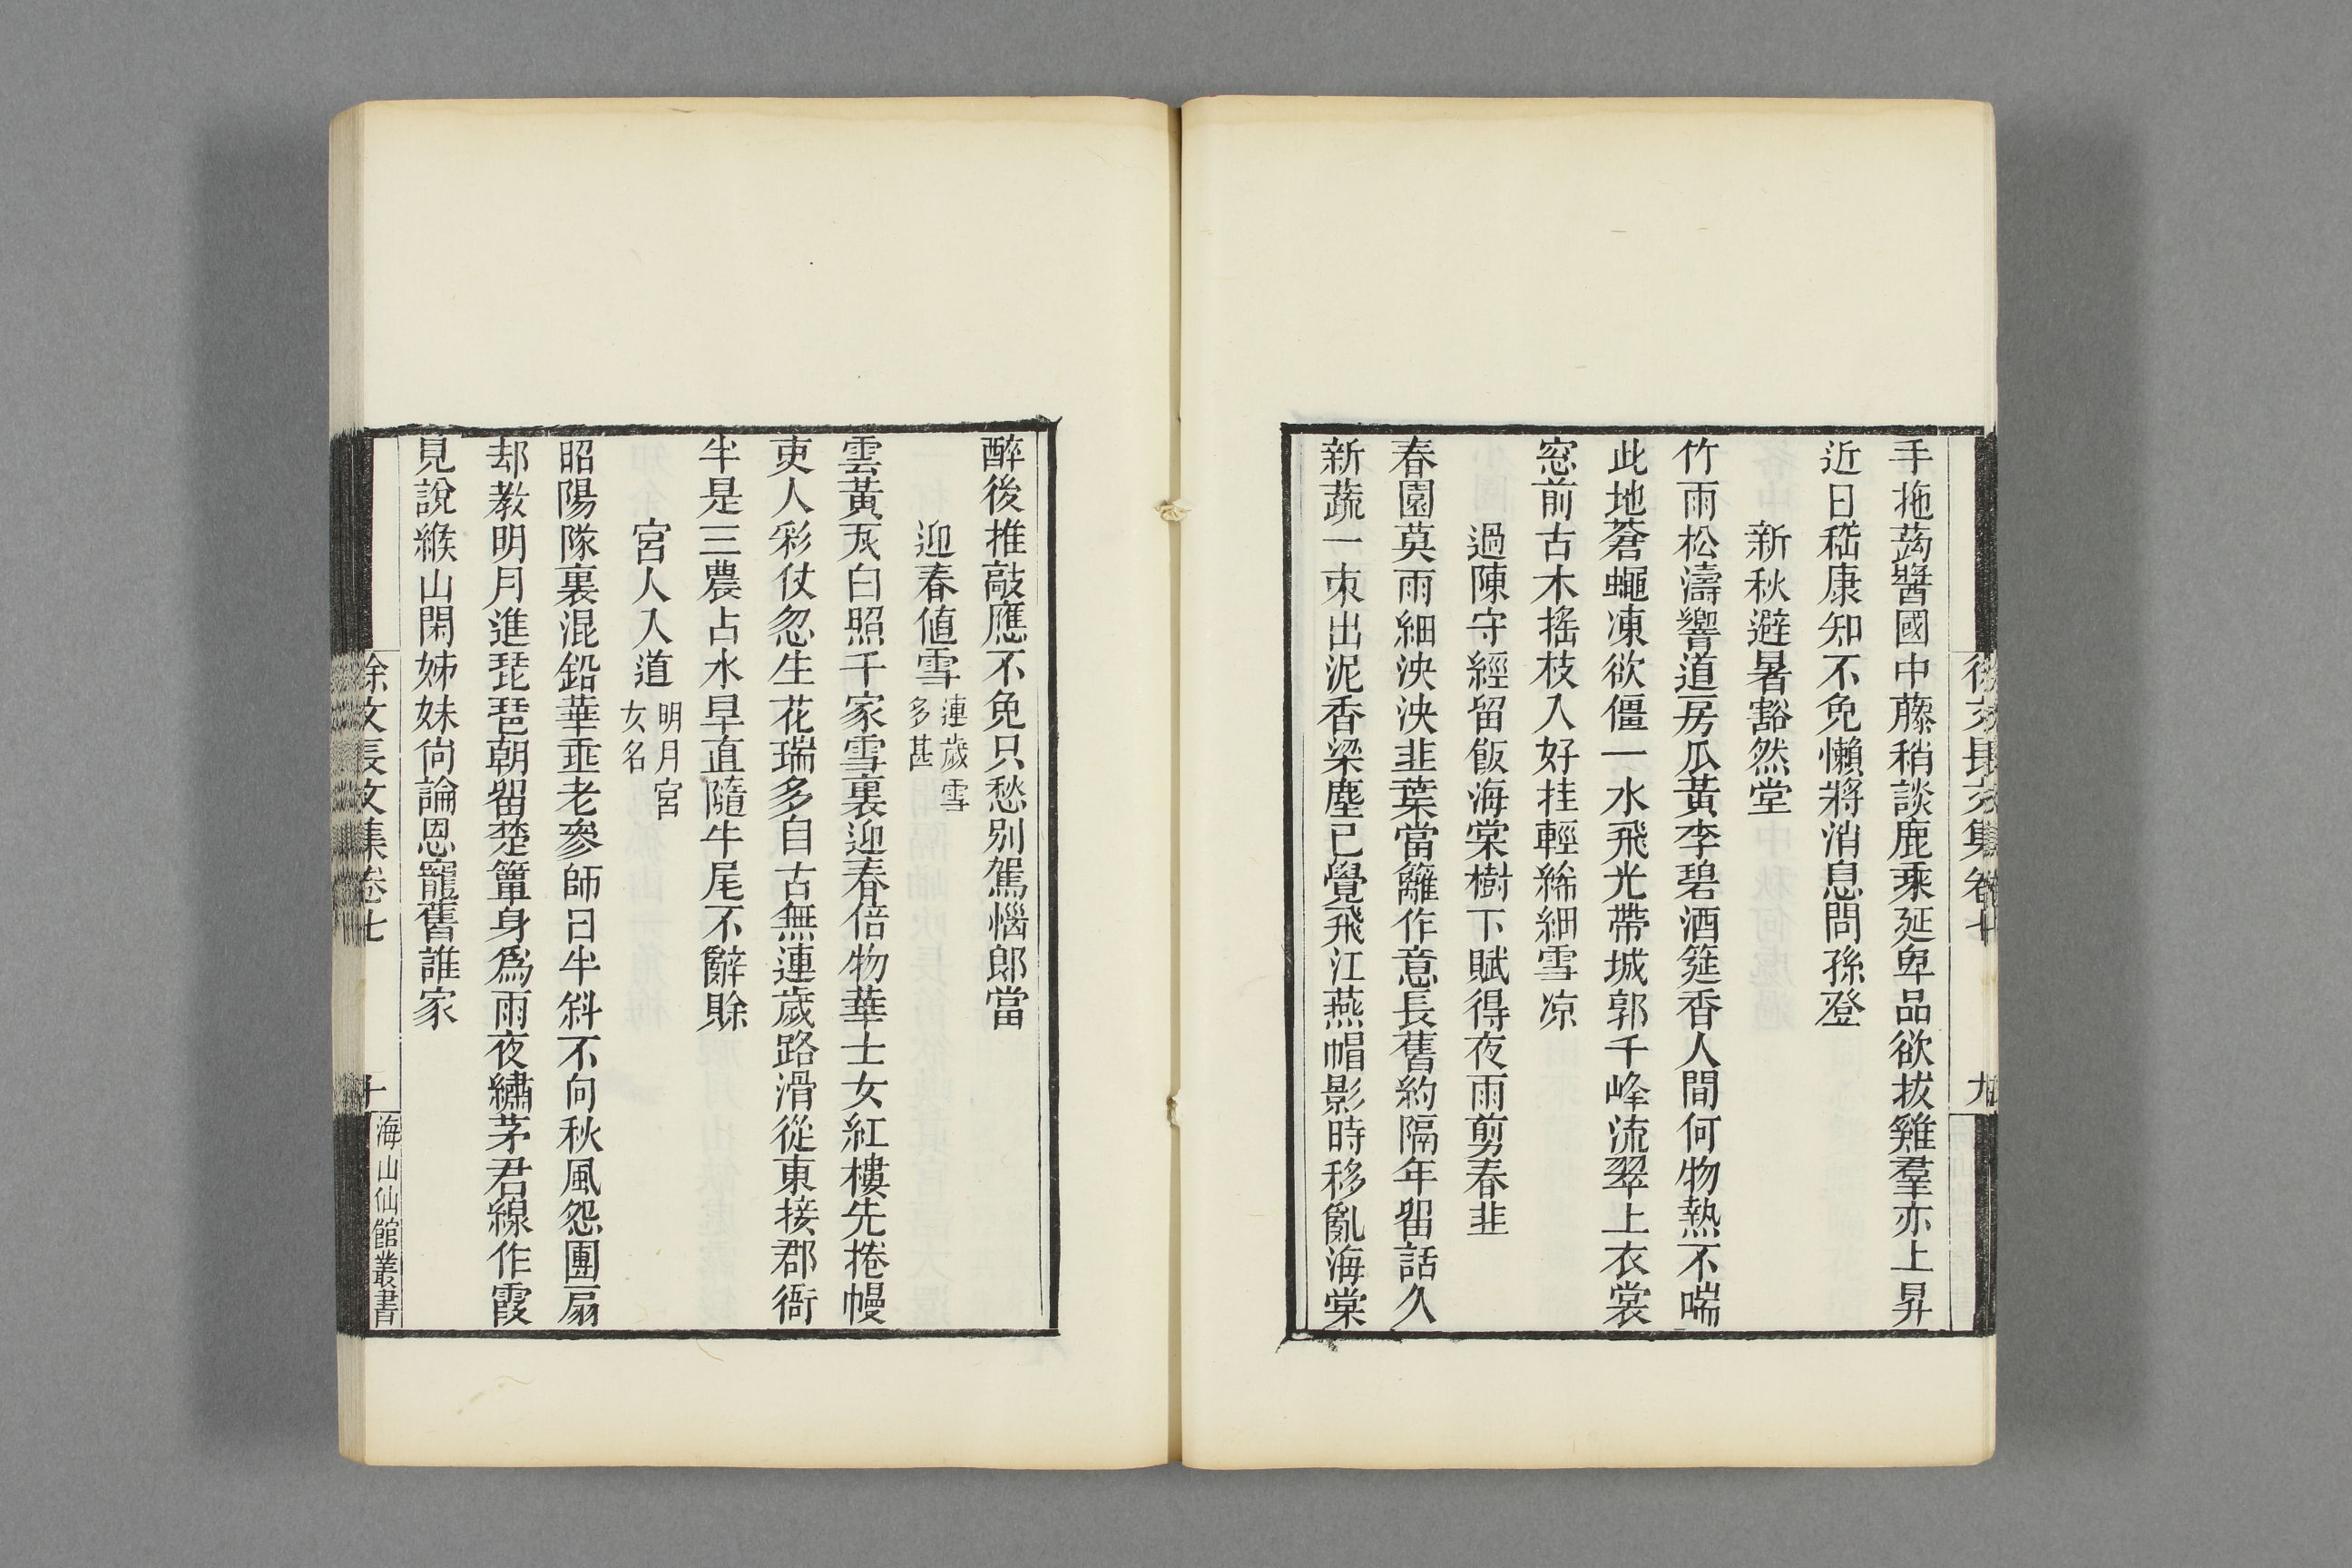 手拖蒟醬國中藤稍談鹿乘延卑品欲拔雞羣亦上昇
近日嵇康知不免懶將消息問孫登
新秋避暑豁然堂
竹雨松濤響道房瓜黃李碧酒筵香人間何物熱不喘
此地蒼蠅凍欲僵一水飛光帶城郭千峰流翠上衣裳
窓前古木搖枝入好挂輕絺細雪凉
過陳守經留飯海棠樹下賦得夜雨剪春韭
春園莫雨細泱泱韭葉當籬作意長舊約隔年留話久
新蔬一束出泥香梁塵已覺飛江燕帽影時移亂海棠
醉後推敲應不免只愁別駕惱郎當
迎春値雪
連歲雪
多甚
雲黃天白照千家雪裏迎春倍物華士女紅樓先捲幔
吏人彩仗忽生花瑞多自古無連歲路滑從東接郡衙
半是三農占水旱直隨牛尾不辭賖
宮人入道
明月宮
女名
昭陽隊裏混鉛華亟老參師日半斜不向秋風怨團扇
却教明月進琵琶朝留楚簟身爲雨夜繡茅君線作霞
見說緱山閑姊妹尙論恩寵舊誰家
徐文長文集卷七
十
海山仙館叢書